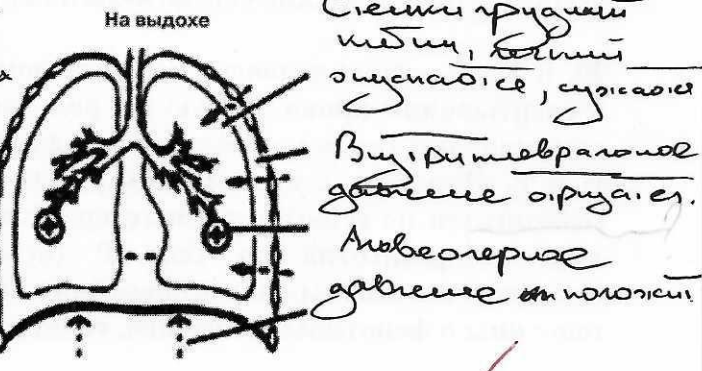 На выдохе
Стенки грудной
клетки, легкий
опускаются, сужаются
Внутриплевральное
давление отрицател.
Альвеолярное
давление положит